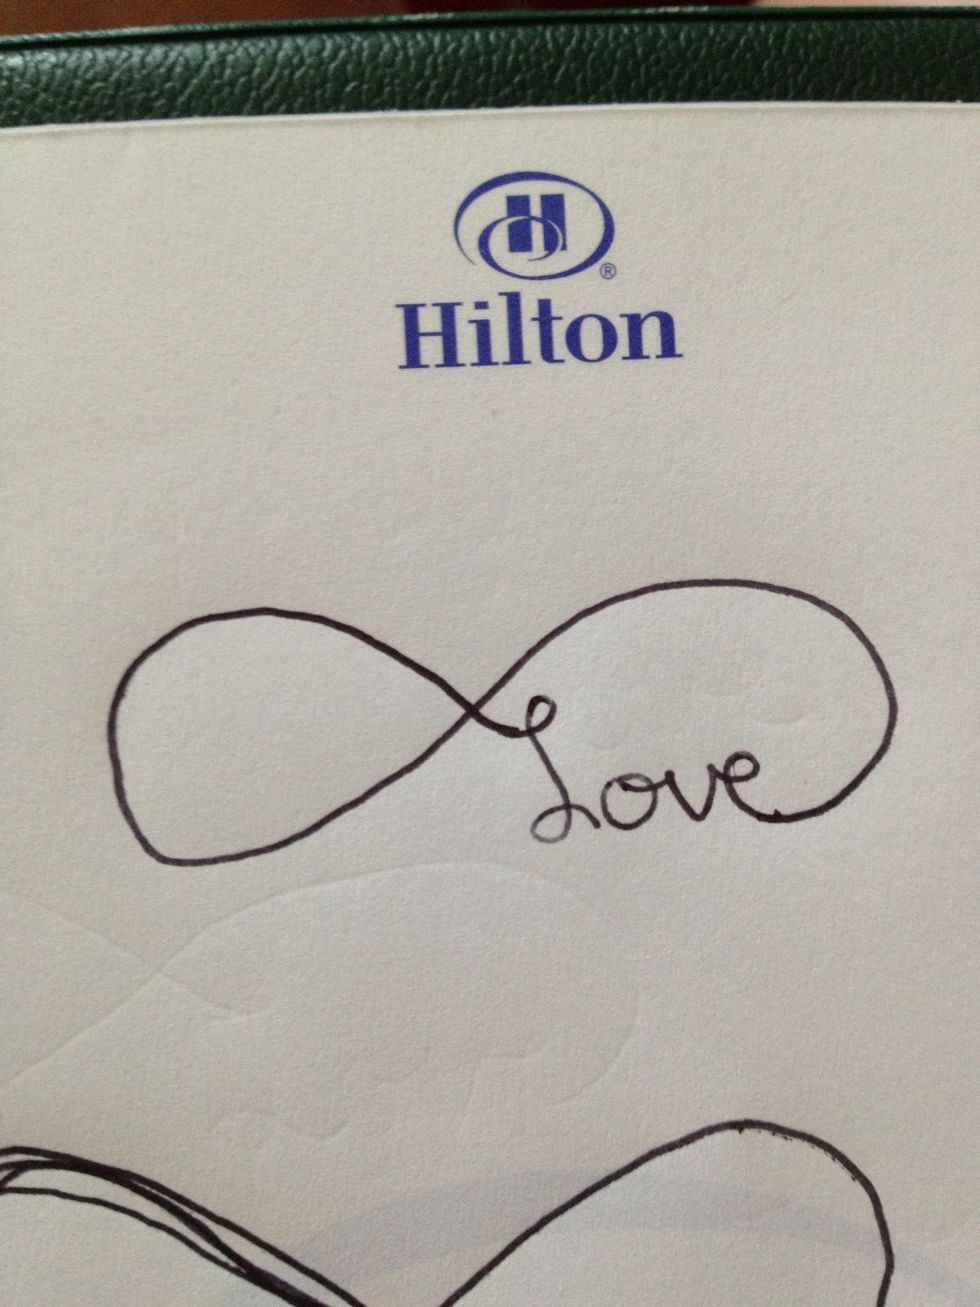 H ®
Hilton
Love